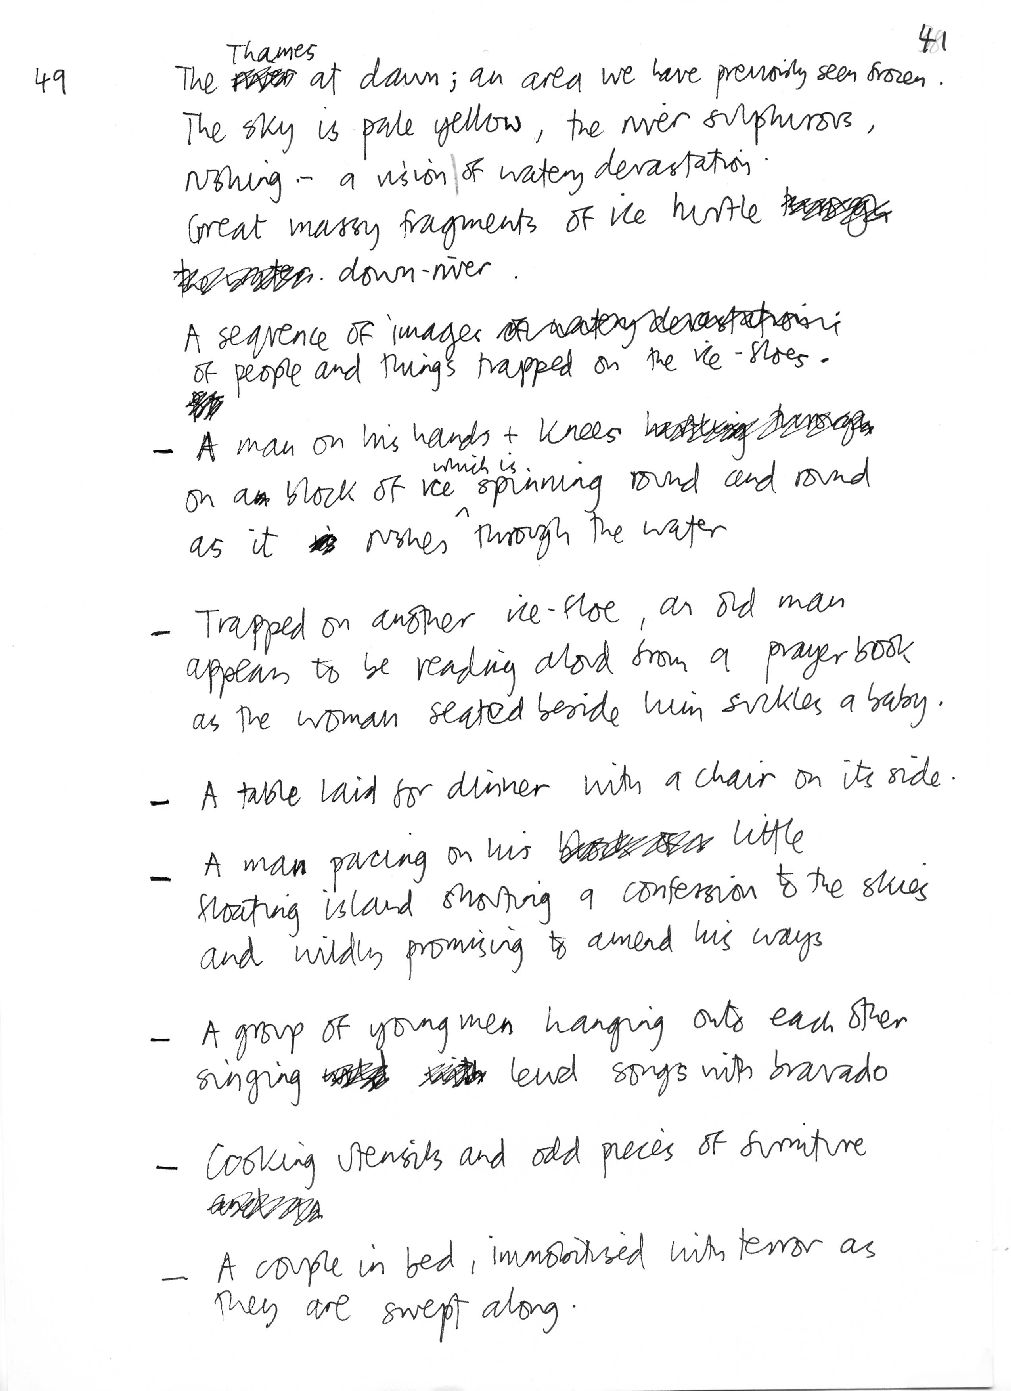 41
Thames
49 The at dawn; an area we have previously seen frozen.
The sky is pale yellow, the river sulphurous,
rushing - a vision of watery devastation.
Great massy fragments of ice hurtle
down-river.
A sequence of images of watery devastation:
of people and things trapped on the ice-floes.
- A man on his hands + knees hurtling through
which is
on a block of ice spinning round and round
as it rushes ^ through the water
- Trapped on another ice-floe, an old man
appears to be reading aloud from a prayer book
as the woman seated beside him suckles a baby.
- A table laid for dinner with a chair on its side.
- A man pacing on his little
floating island shouting a confession to the skies
and wildly promising to amend his ways
- A group of young men hanging onto each other
singing lewd songs with bravado
- Cooking utensils and odd pieces of furniture
- A couple in bed, immobilised with terror as
they are swept along.